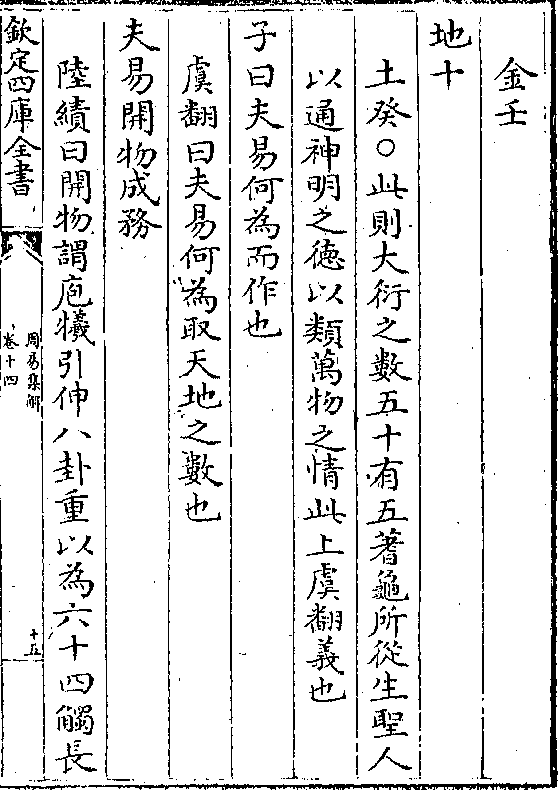 金壬
地十
土癸○此則大衍之數五十有五蓍龜所從生聖人
以通神明之德以類萬物之情此上虞翻義也
子曰夫易何為而作也
虞翻曰夫易何為取天地之數也
夫易開物成務
陸績曰開物謂庖犧引伸八卦重以為六十四觸長
欽定四庫全書
周易集解
卷十四
十五